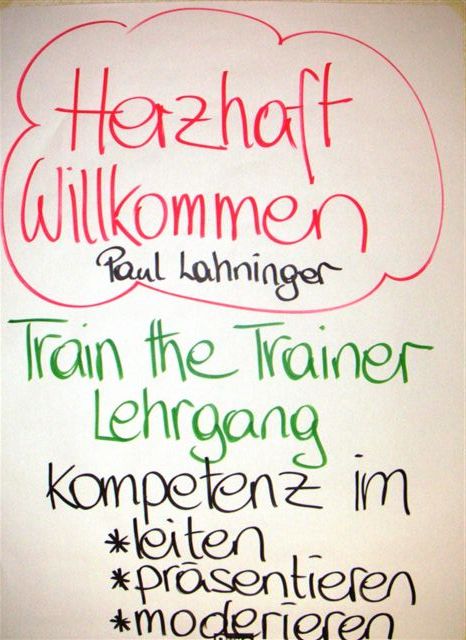 Herzhaft
Willkommen
Paul Lahninger
Train the Trainer
Lehrgang
Kompetenz im
*leiten
*präsentieren
*moderieren